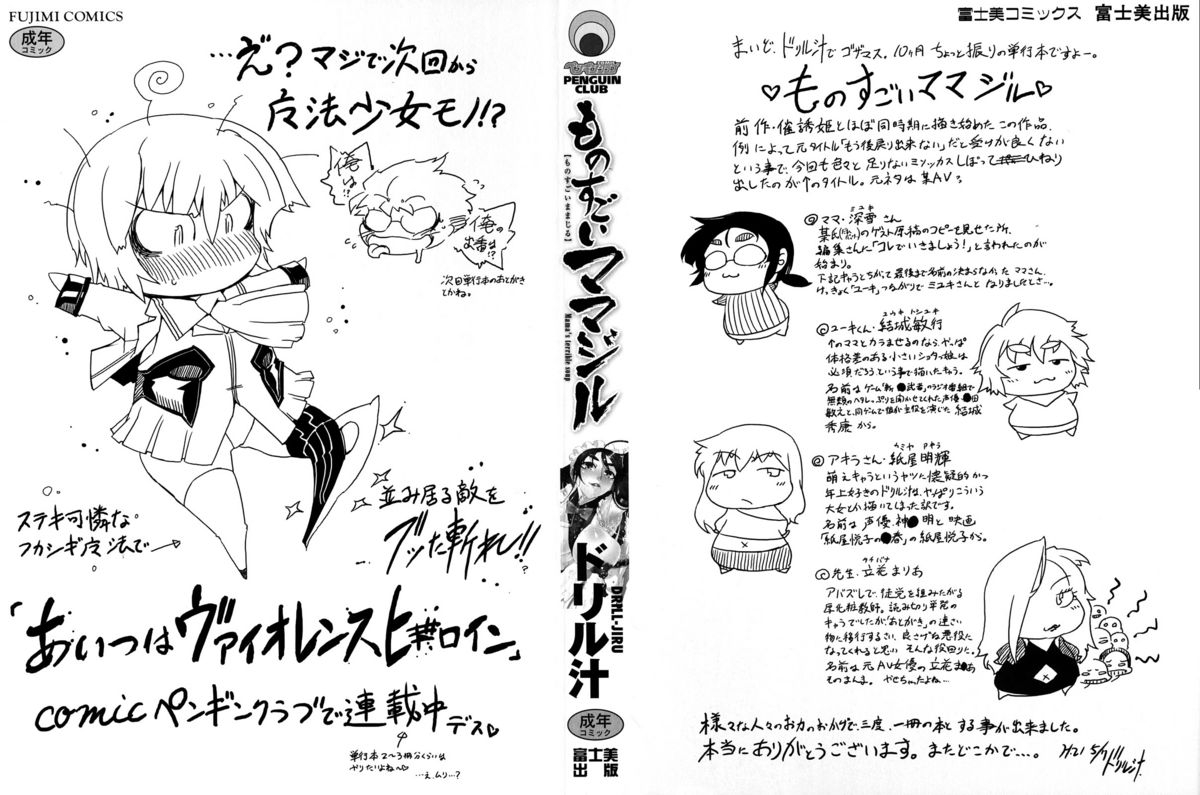 FUJIMI COMICS
成年
コミック
…え?マジで次回から
魔法少女モノ!?
俺は!?
俺の
出番は!?
次回単行本のあとがき
とかね。
ステキ可憐な
フカシギ魔法で
並み居る敵を
ブッた斬れし!!
「あいつはヴァイオレンスヒロイン」
comicペンギンクラブで連載中デス♡
単行本2〜3冊分くらいは
やりたいよね〜♡
…え、ムリ…?
PENGUIN
CLUB
ものすごいママジル
【ものすごいままじる】
Mama's terrible soup
ドリル汁
DRILL-JIRU
成年
コミック
富士美
出版
富士美コミックス 富士美出版
まいど、ドリル汁でゴザマス。10ヶ月ちょっと振りの単行本ですよー。
♡ものすごいママジル♡
前作・催誘姫とほぼ同時期に描き始めたこの作品、
例によって元タイトル「もう後戻り出来ない」だと受けが良くない
という事で、今回も色々と足りないミソッカスしぼってひねり
出したのが个のタイトル。元ネタは某AV?
@ママ・深雪さん
ミユキ
某氏のゲスト原稿のコピーを見せた所、
編集さんに「コレでいきましょう!」と言われたのが
始まり。
下記キャラとちがって最後まで名前の決まらなかったママさん、
けっきょく「ユーキ」つながりでミユキさんとなりましたとさ…。
@ユーキくん・結城敏行
ユウキ トシユキ
个のママとカラませるのなら、やっぱ
体格差のある小さいショタっ娘は
必須だろうという事で描いたキャラ。
名前はゲーム「斬●武者」のラジオ番組で
無類のヘタレっぷりを聞かせてくれた声優・●田
敏えと、同ゲームで彼が主役を演じた結城
秀康から。
@アキラさん・紙屋明輝
カミヤ アキラ
萌えキャラというヤツに懐疑的かつ
年上好きのドリル汁は、やっぱりこういう
大女しか描いてしまった訳です。
名前は声優・神●明と映画
「紙屋悦子の●春」の紙屋悦子から。
@先生・立花まりあ
タチバナ
アバズレで、徒党を組みたがる
厚化粧教師。読み切り単発の
キャラでしたが「あとがき」の連さい
物に移行するさい、良さげな悪役に
なってくれると思い そんな役回りに。
名前は元AV女優の立花ま●あ
そのまんま。やせちゃったよね…
様々な人々のお力のおかげで、三度、一冊の本とする事が出来ました。
本当にありがとうございます。またどこかで…。
H21 5/7 ドリル汁